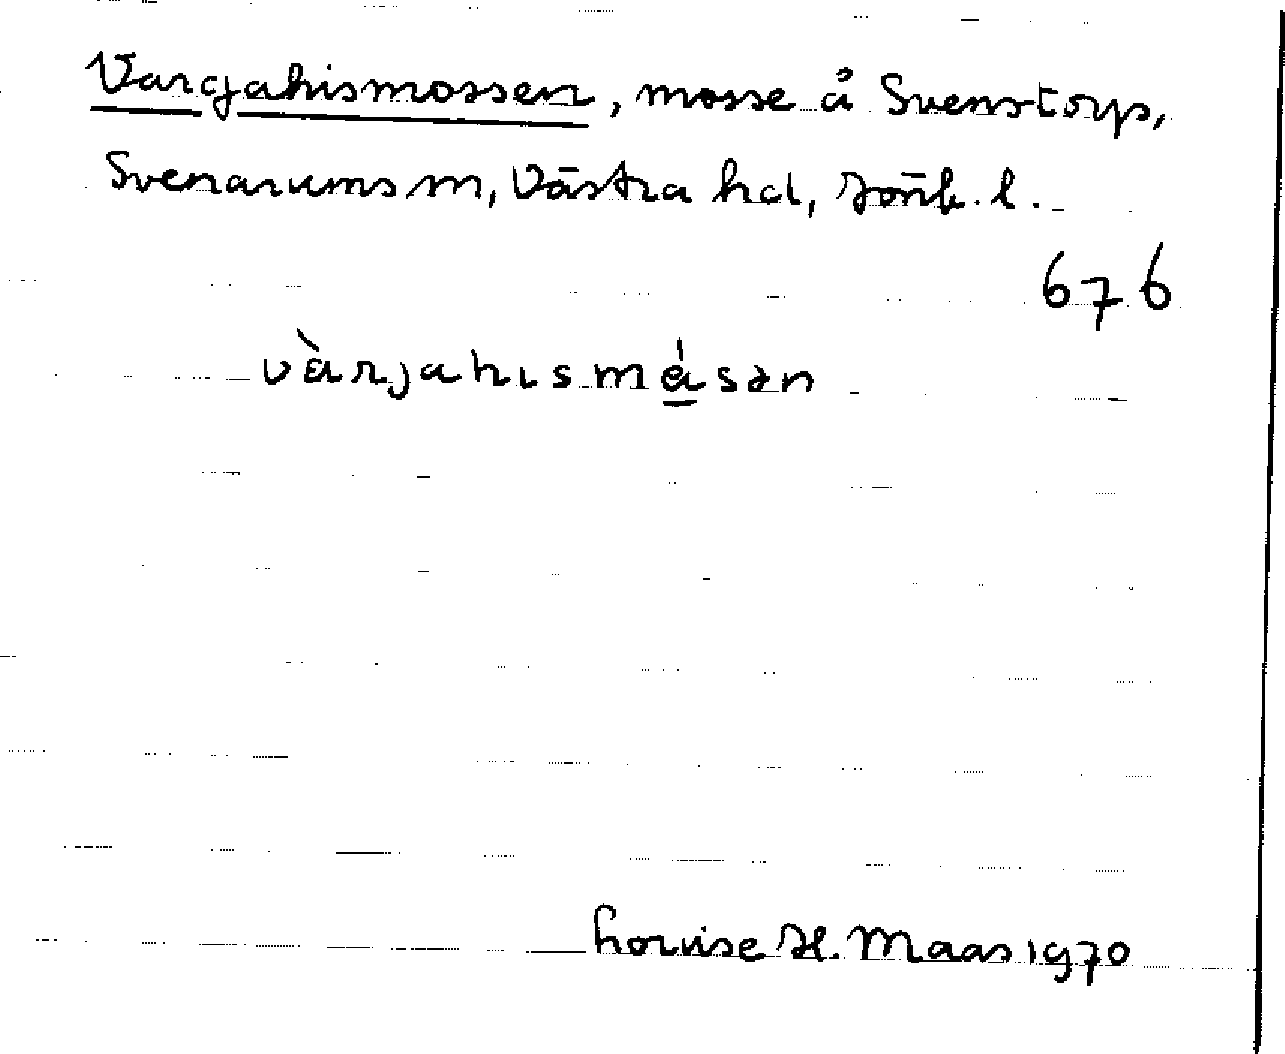 Vargahismossen, mosse å Svenstorp,
Svenarums sn, Västra hd, Jönk. l.
676
vàrjahısmásən
Louise H. Maas 1970